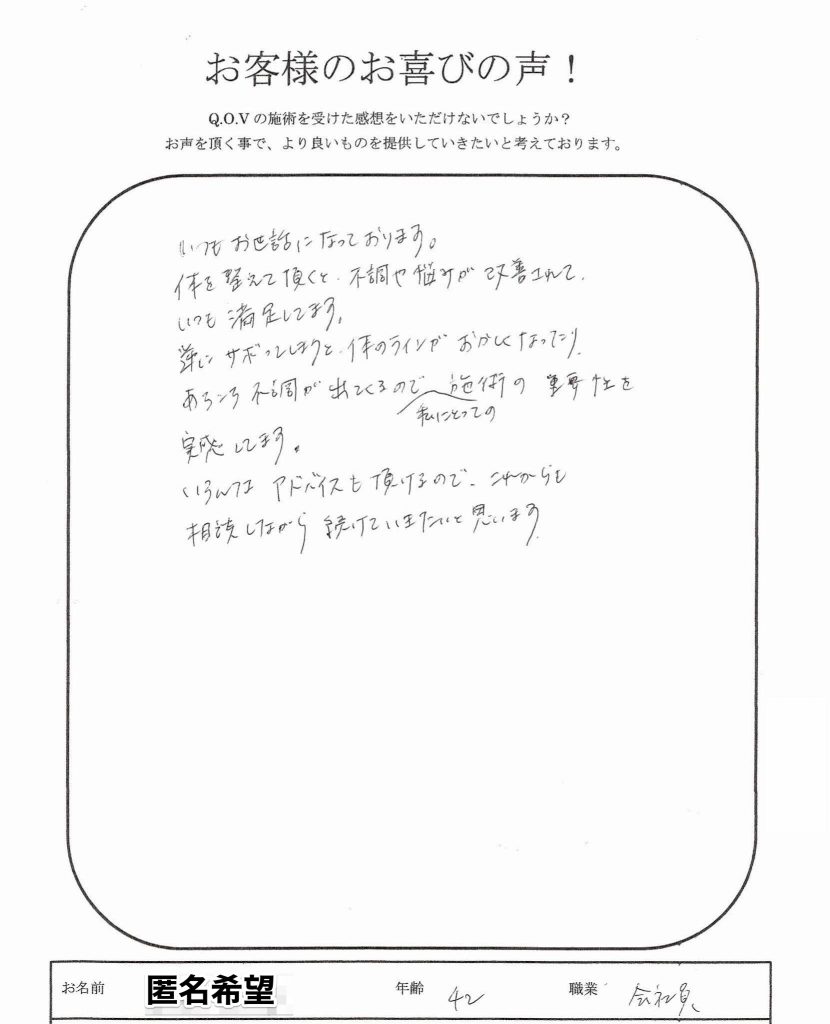 お客様のお喜びの声！
Q.O.Vの施術を受けた感想をいただけないでしょうか？
お声を頂く事で、より良いものを提供していきたいと考えております。
いつもお世話になっております。
体を整えて頂くと、不調や悩みが改善されて、
いつも満足してます。
逆にサボってしまうと、体のラインがおかしくなったり、
あちこち不調が出てくるので 施術の重要性を
私にとっての
実感してます。
いろんなアドバイスも頂けるので、これからも
相談しながら続けていきたいと思います。
お名前 匿名希望 年齢 42 職業 会社員